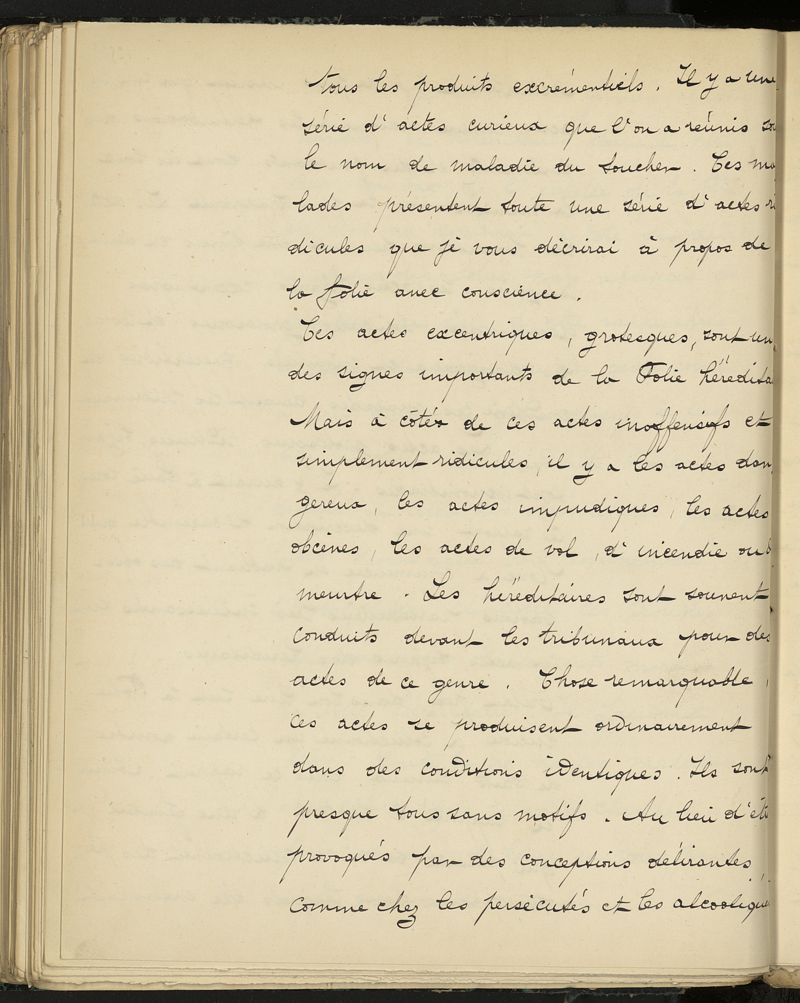 tous les produits excrémentiels. Il y a une
série d'actes curieux que l'on a réunis sou
le nom de maladie du toucher. Ces ma
lades présentent toute une série d'actes ri
dicules que je vous décrirai à propos de
la folie avec conscience.
Ces actes excentriques, grotesques, sont un
des signes importants de la Folie héréditai
Mais à côtés de ces actes inoffensifs et
simplement ridicules, il y a les actes dan
gereux, les actes impudiques, les actes
obcènes, les actes de vol, d'incendie ou
meurtre. Les héréditaires sont souvent
conduits devant les tribunaux pour des
actes de ce genre. Chose remarquable,
ces actes se produisent ordinairement
dans des conditions identiques. Ils sont
presque tous sans motifs. Au lieu d'êt
provoqués par des conceptions délirantes
comme chez les persécutés et les alcooliqu